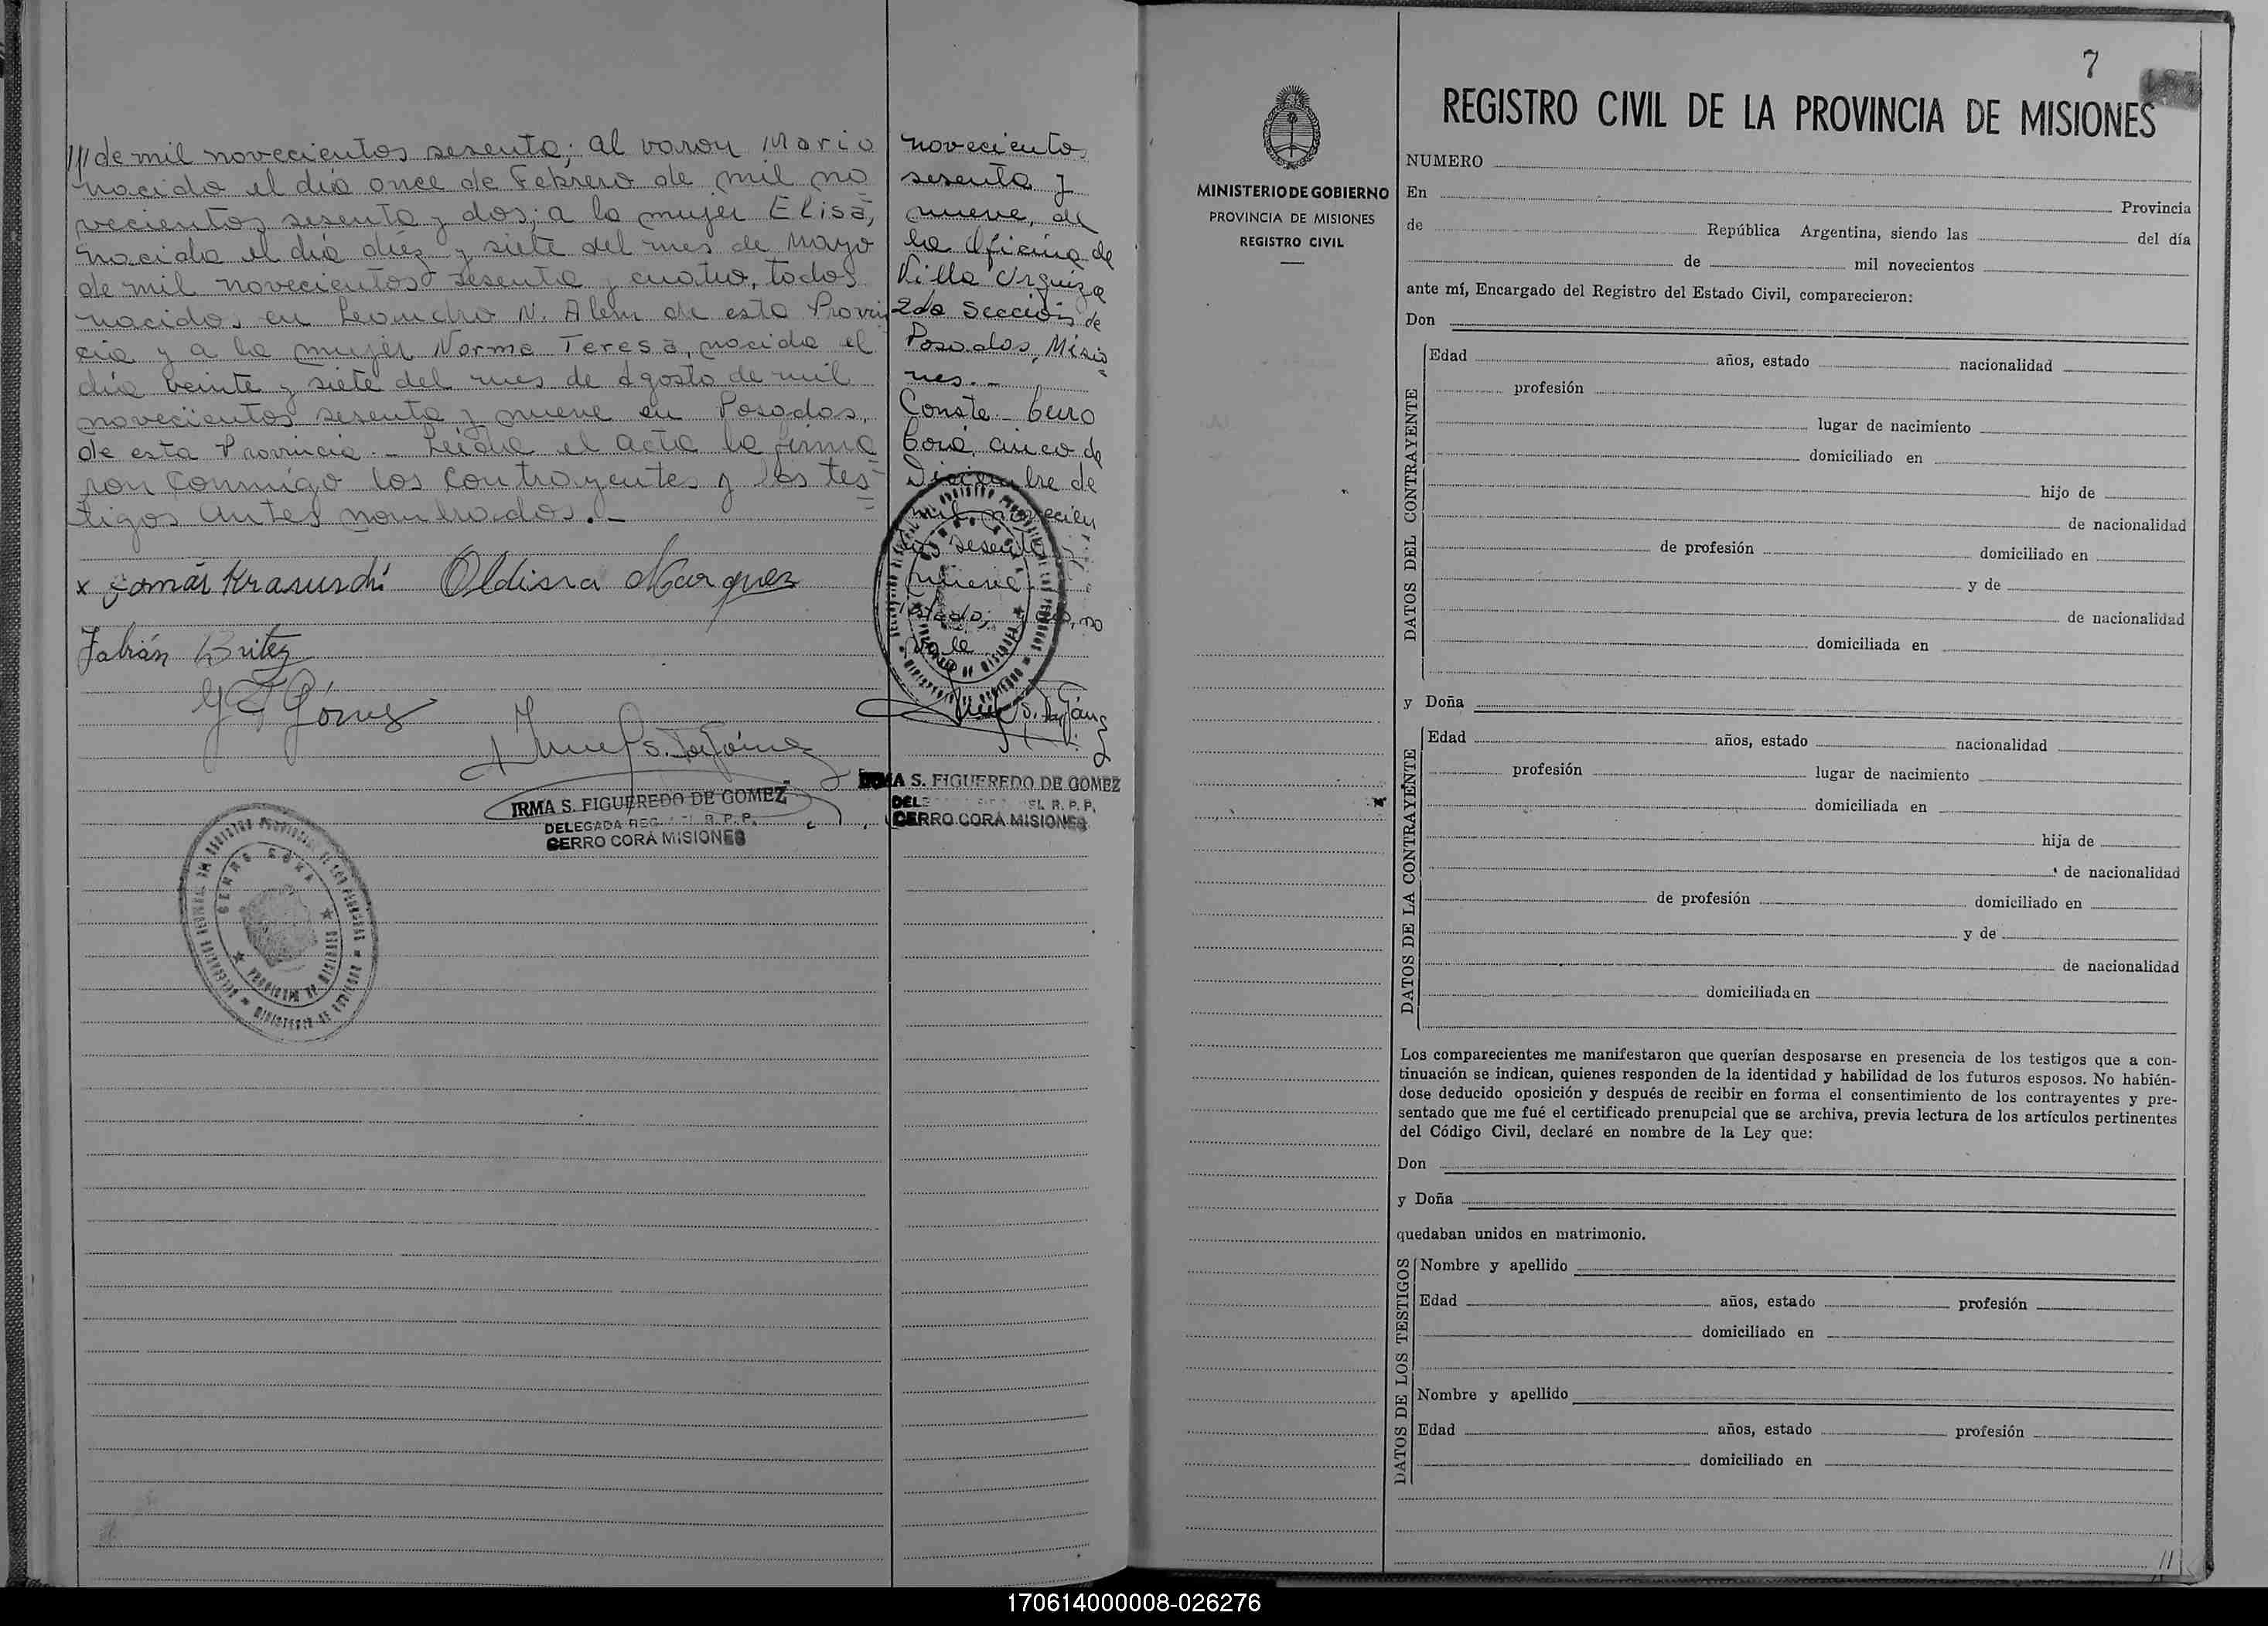 /// de mil novecientos sesenta; al varon Mario
nacido el día once de Febrero de mil no
vecientos sesenta y dos; a la mujer Elisa,
nacida el día diez y siete del mes de Mayo
de mil novecientos sesenta y cuatro, todos
nacidos en Leandro N. Alem de esta Provin
cia y a la mujer Norma Teresa, nacida el
día veinte y siete del mes de Agosto de mil
novecientos sesenta y nueve en Posadas,
de esta Provincia.- Leída el acta la firma
ron conmigo los contrayentes y los tes-
tigos antes nombrados.-
x Tomás Krasuschi Oldisia Marquez
Fabián Britez
IRMA S. FIGUEREDO DE GOMEZ
DELEGADA REG. R. P. P.
CERRO CORÁ MISIONES
CERRO CORA
PROVINCIA DE MISIONES
novecientos
sesenta y
nueve, de
la Oficina de
Villa Urquiza
2da Sección de
Posadas, Misio
nes.-
Conste. Cerro
Corá, cinco de
Diciembre de
mil novecien
tos sesenta y
nueve
vale
IRMA S. FIGUEREDO DE GOMEZ
DEL R. P. P.
CERRO CORÁ MISIONES
7
MINISTERIO DE GOBIERNO
PROVINCIA DE MISIONES
REGISTRO CIVIL
REGISTRO CIVIL DE LA PROVINCIA DE MISIONES
NUMERO
En Provincia
de República Argentina, siendo las del día
de mil novecientos
ante mí, Encargado del Registro del Estado Civil, comparecieron:
Don
DATOS DEL CONTRAYENTE
Edad años, estado nacionalidad
profesión
lugar de nacimiento
domiciliado en
hijo de
de nacionalidad
de profesión domiciliado en
y de
de nacionalidad
domiciliada en
y Doña
DATOS DE LA CONTRAYENTE
Edad años, estado nacionalidad
profesión lugar de nacimiento
domiciliada en
hija de
de nacionalidad
de profesión domiciliado en
y de
de nacionalidad
domiciliada en
Los comparecientes me manifestaron que querían desposarse en presencia de los testigos que a con-
tinuación se indican, quienes responden de la identidad y habilidad de los futuros esposos. No habién-
dose deducido oposición y después de recibir en forma el consentimiento de los contrayentes y pre-
sentado que me fué el certificado prenupcial que se archiva, previa lectura de los artículos pertinentes
del Código Civil, declaré en nombre de la Ley que:
Don
y Doña
quedaban unidos en matrimonio.
DATOS DE LOS TESTIGOS
Nombre y apellido
Edad años, estado profesión
domiciliado en
Nombre y apellido
Edad años, estado profesión
domiciliado en
170614000008-026276